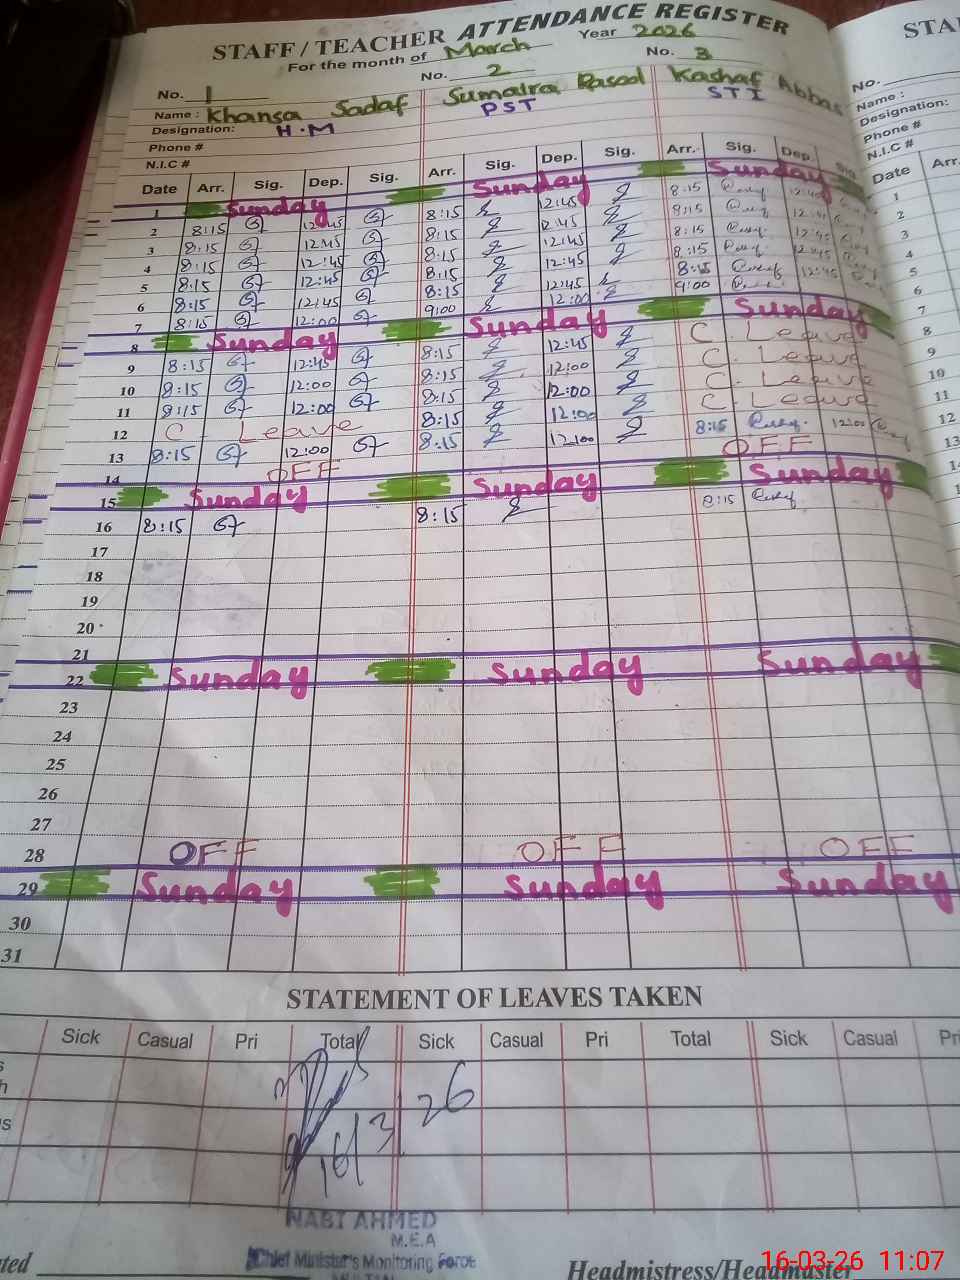 STAFF / TEACHER ATTENDANCE REGISTER
For the month of March Year 2026
No. 1 No. 2 No. 3
Name : Khansa Sadaf Sumaira Rasool Kashaf Abbas
Designation: H.M PST STI
Phone #
N.I.C #
Date Arr. Sig. Dep. Sig. Arr. Sig. Dep. Sig. Arr. Sig. Dep. Sig
1 Sunday Sunday Sunday
2 8:15 12:45 8:15 12:45 8:15 12:45
3 8:15 12:45 8:15 12:45 8:15 12:45
4 8:15 12:45 8:15 12:45 8:15 12:45
5 8:15 12:45 8:15 12:45 8:15 12:45
6 8:15 12:45 8:15 12:45 8:15 12:45
7 8:15 12:00 9:00 12:00 9:00
8 Sunday Sunday Sunday
9 8:15 12:45 8:15 12:45 C. Leave
10 8:15 12:00 8:15 12:00 C. Leave
11 8:15 12:00 8:15 12:00 C. Leave
12 C. Leave 8:15 12:00 C. Leave
13 8:15 12:00 8:15 12:00 8:15 12:00
14 OFF OFF
15 Sunday Sunday Sunday
16 8:15 8:15 8:15
17
18
19
20
21
22 Sunday Sunday Sunday
23
24
25
26
27
28 OFF OFF OFF
29 Sunday Sunday Sunday
30
31
STATEMENT OF LEAVES TAKEN
Sick Casual Pri Total Sick Casual Pri Total Sick Casual Pri
16/3/26
NABI AHMED
M.E.A
Chief Minister's Monitoring Force
Headmistress/Headmaster
16-03-26 11:07
STA
No.
Name :
Designation:
Phone #
N.I.C #
Date Arr.
1
2
3
4
5
6
7
8
9
10
11
12
13